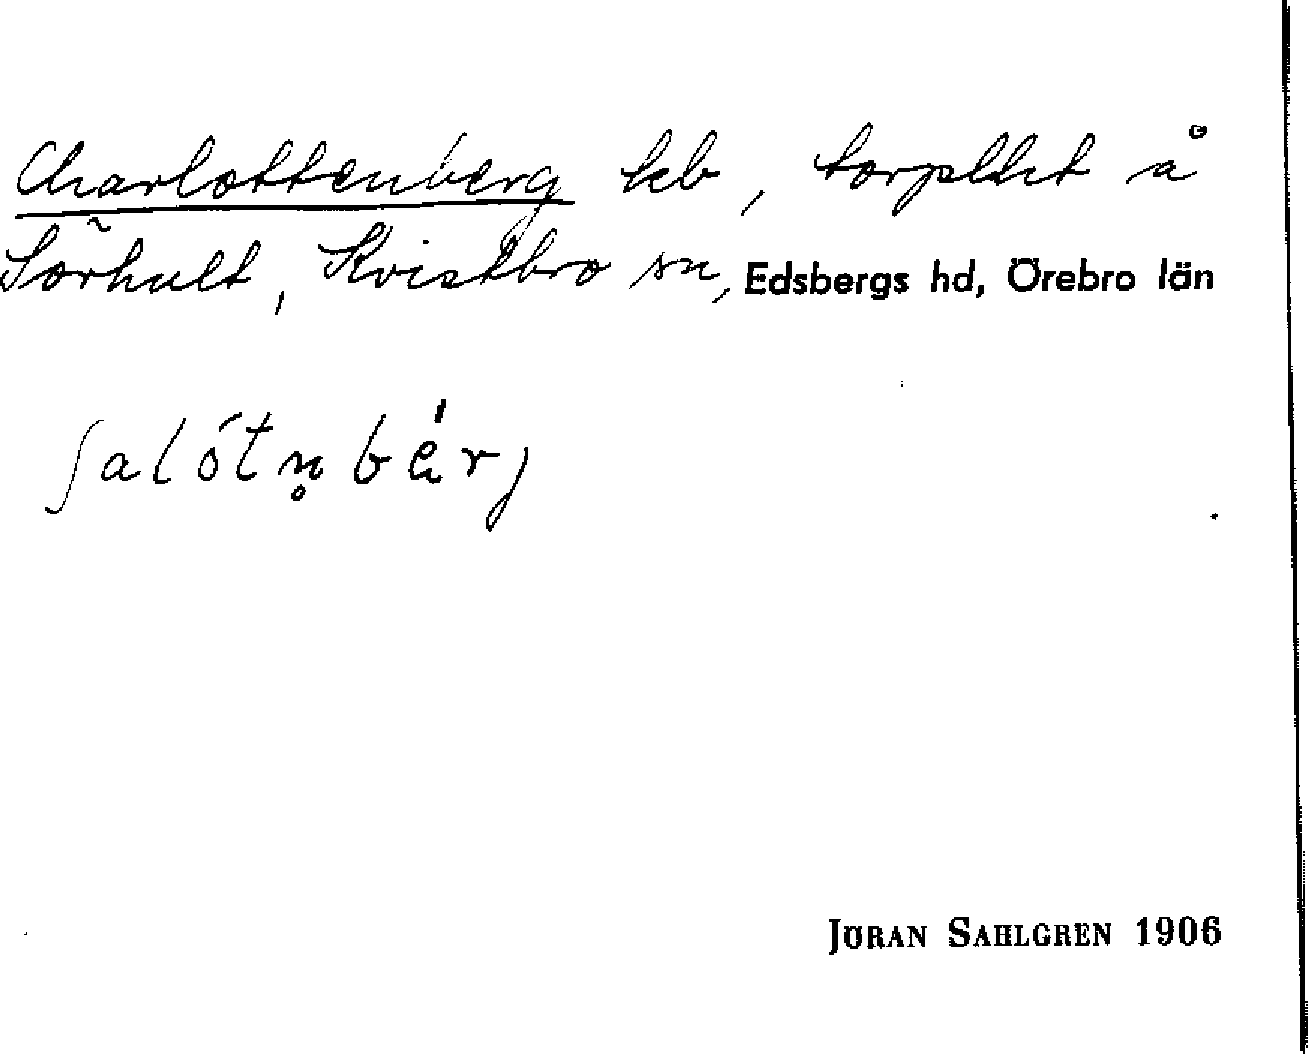 Charlottenberg lhb, torplht å
Sörhult, Kvistbro sn, Edsbergs hd, Örebro län
ʃalótn̥bǽrj
JÖRAN SAHLGREN 1906